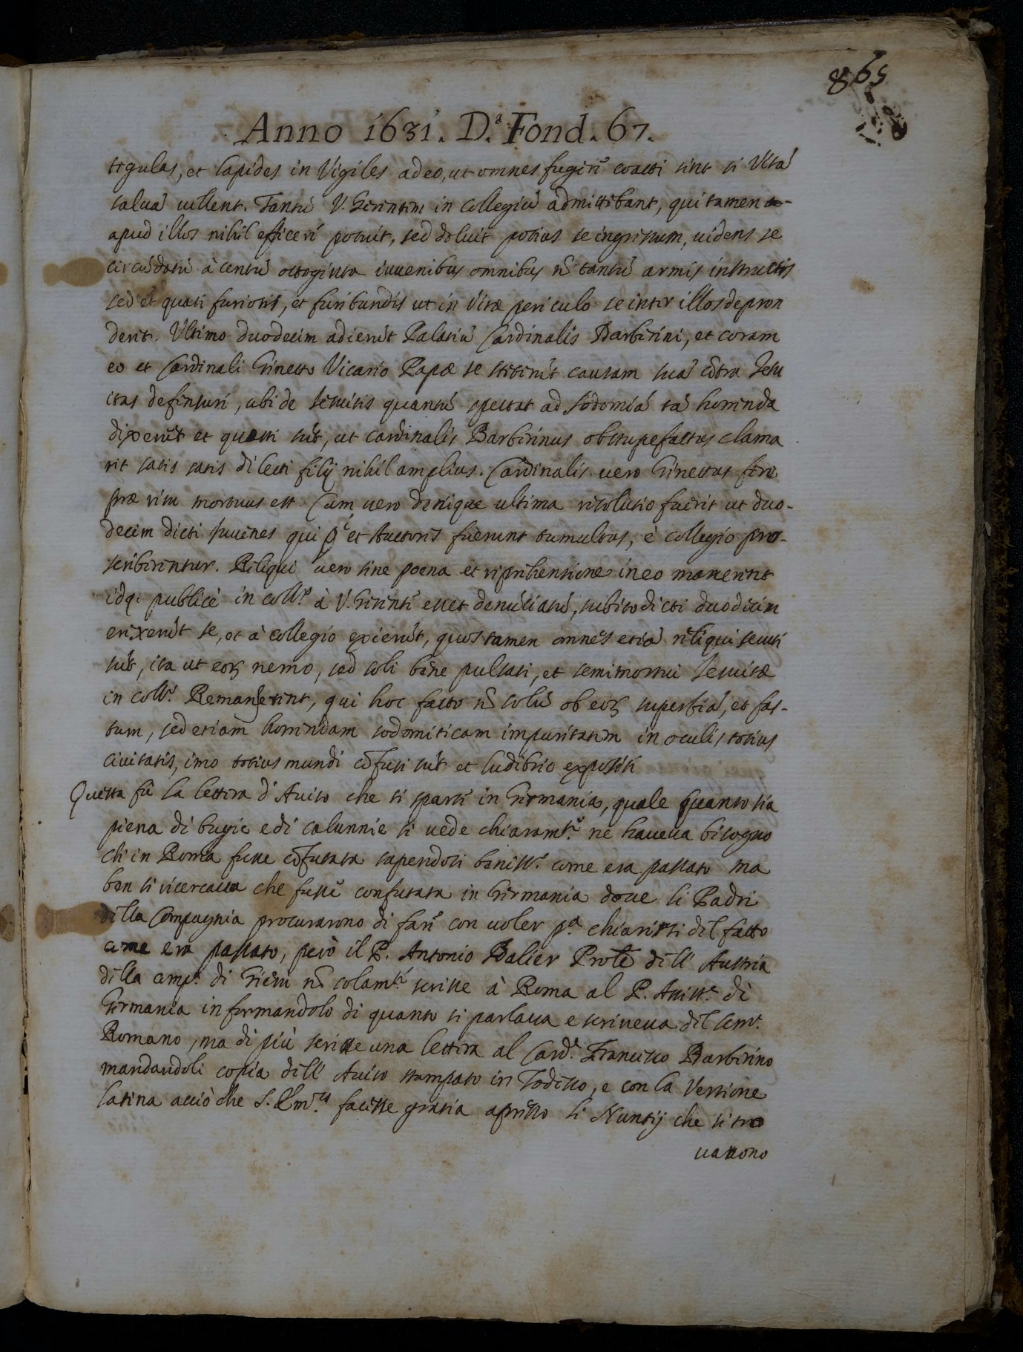 865
Anno 1631. D.ª Fond. 67.
tegulas, et lapides in Vigiles adeo, ut omnes fugere coacti sint si Vitã
salvã vellent. Tantũ V. Gerentem in Collegiũ admittebant, qui tamen
apud illos nihil efficere potuit, sed doluit potius se ingressum, videns se
circũdatũ à centũ octoginta iuvenibus omnibus nõ tantũ armis instructis
sed et quasi furiosis, et furibundis ut in Vitæ periculo se inter illos depren
derit. Ultimo duodecim adierũt Palatiũ Cardinalis Barberini, et coram
eo et Cardinali Ginetto Vicario Papæ se stiterũt causam suã cõtra Jesu
itas defensuri, ubi de Jesuitis quantũ spectat ad sodomiã tã horrenda
dixerũt et questi sũt, ut Cardinalis Barberinus obstupefactus clama
rit satis satis dilecti filij nihil amplius. Cardinalis vero Ginettus fere
præ risu mortuus est Cum vero denique ultima resolutio fuerit ut duo-
decim dicti Juvenes qui et Auctores fuerunt tumultus, è collegio pro-
scriberentur. Reliqui vero sine poena et reprehensione in eo manerent
idq. publicè in coll.º à V. Gerente esset denũtiatũ, subito dicti duodecim
erexerũt se, et à collegio exierũt, quos tamen omnes etiã reliqui secuti
sũt, ita ut eoꝝ nemo, sed soli bene pulsati, et semimortui Jesuitæ
in coll.º Remanserint, qui hoc facto nõ solũ ob eoꝝ superbiã, et fas-
tum, sed etiam horrendam sodomiticam impuritatem in oculis totius
civitatis, imo totius mundi cõfusi sũt et ludibrio expositi.
Questa fù la lettera d'Aviso che si sparse in Germania, quale quanto sia
piena di bugie e di calunnie si vede chiaram.te ne haveva bisogno
ch in Roma fusse cõfutata sapendosi beniss.º come era passato ma
ben si ricercava che fusse confutata in Germania dove li Padri
della Compagnia procurarono di farᵉ con voler p.ª chiarirsi del fatto
come era passato, però il P. Antonio Balier Prole dell' Austria
della comp.ª di Giesu nõ solam.te scrisse à Roma al P. Assist.e di
Germania informandolo di quanto si parlava e scriveva del sem.º
Romano, ma di più scrisse una lettera al Card.e Francesco Barberino
mandandoli copia dell' Aviso stampato in Todesco, e con la Versione
latina acciò che S. Em.za facesse gratia appresso li Nuntij che si tro
vavono